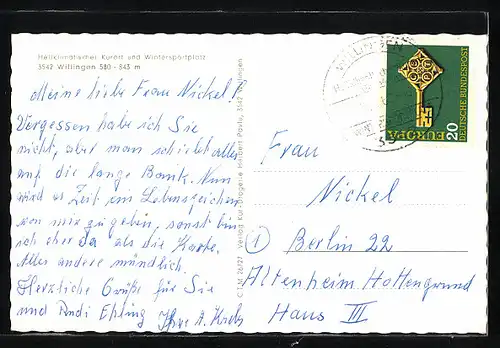 Heilklimatischer Kurort und Wintersportplatz
3542 Willingen 580 - 843 m
Meine liebe Frau Nickel!
Vergessen habe ich Sie
nicht, aber man schiebt Alles
auf die lange Bank. Nun
wird es Zeit ein Lebenszeichen
von mir zu geben, sonst bin
ich eher da als die Karte.
Alles andere mündlich.
Herzliche Grüße für Sie
und Ihre A.
C Verlag Kur-Drogerie Herbert 3542 Willingen
WILLINGEN
35
20
EUROPA
DEUTSCHE BUNDESPOST
Frau
Nickel
1 Berlin 22
Altenheim Hottengrund
Haus III